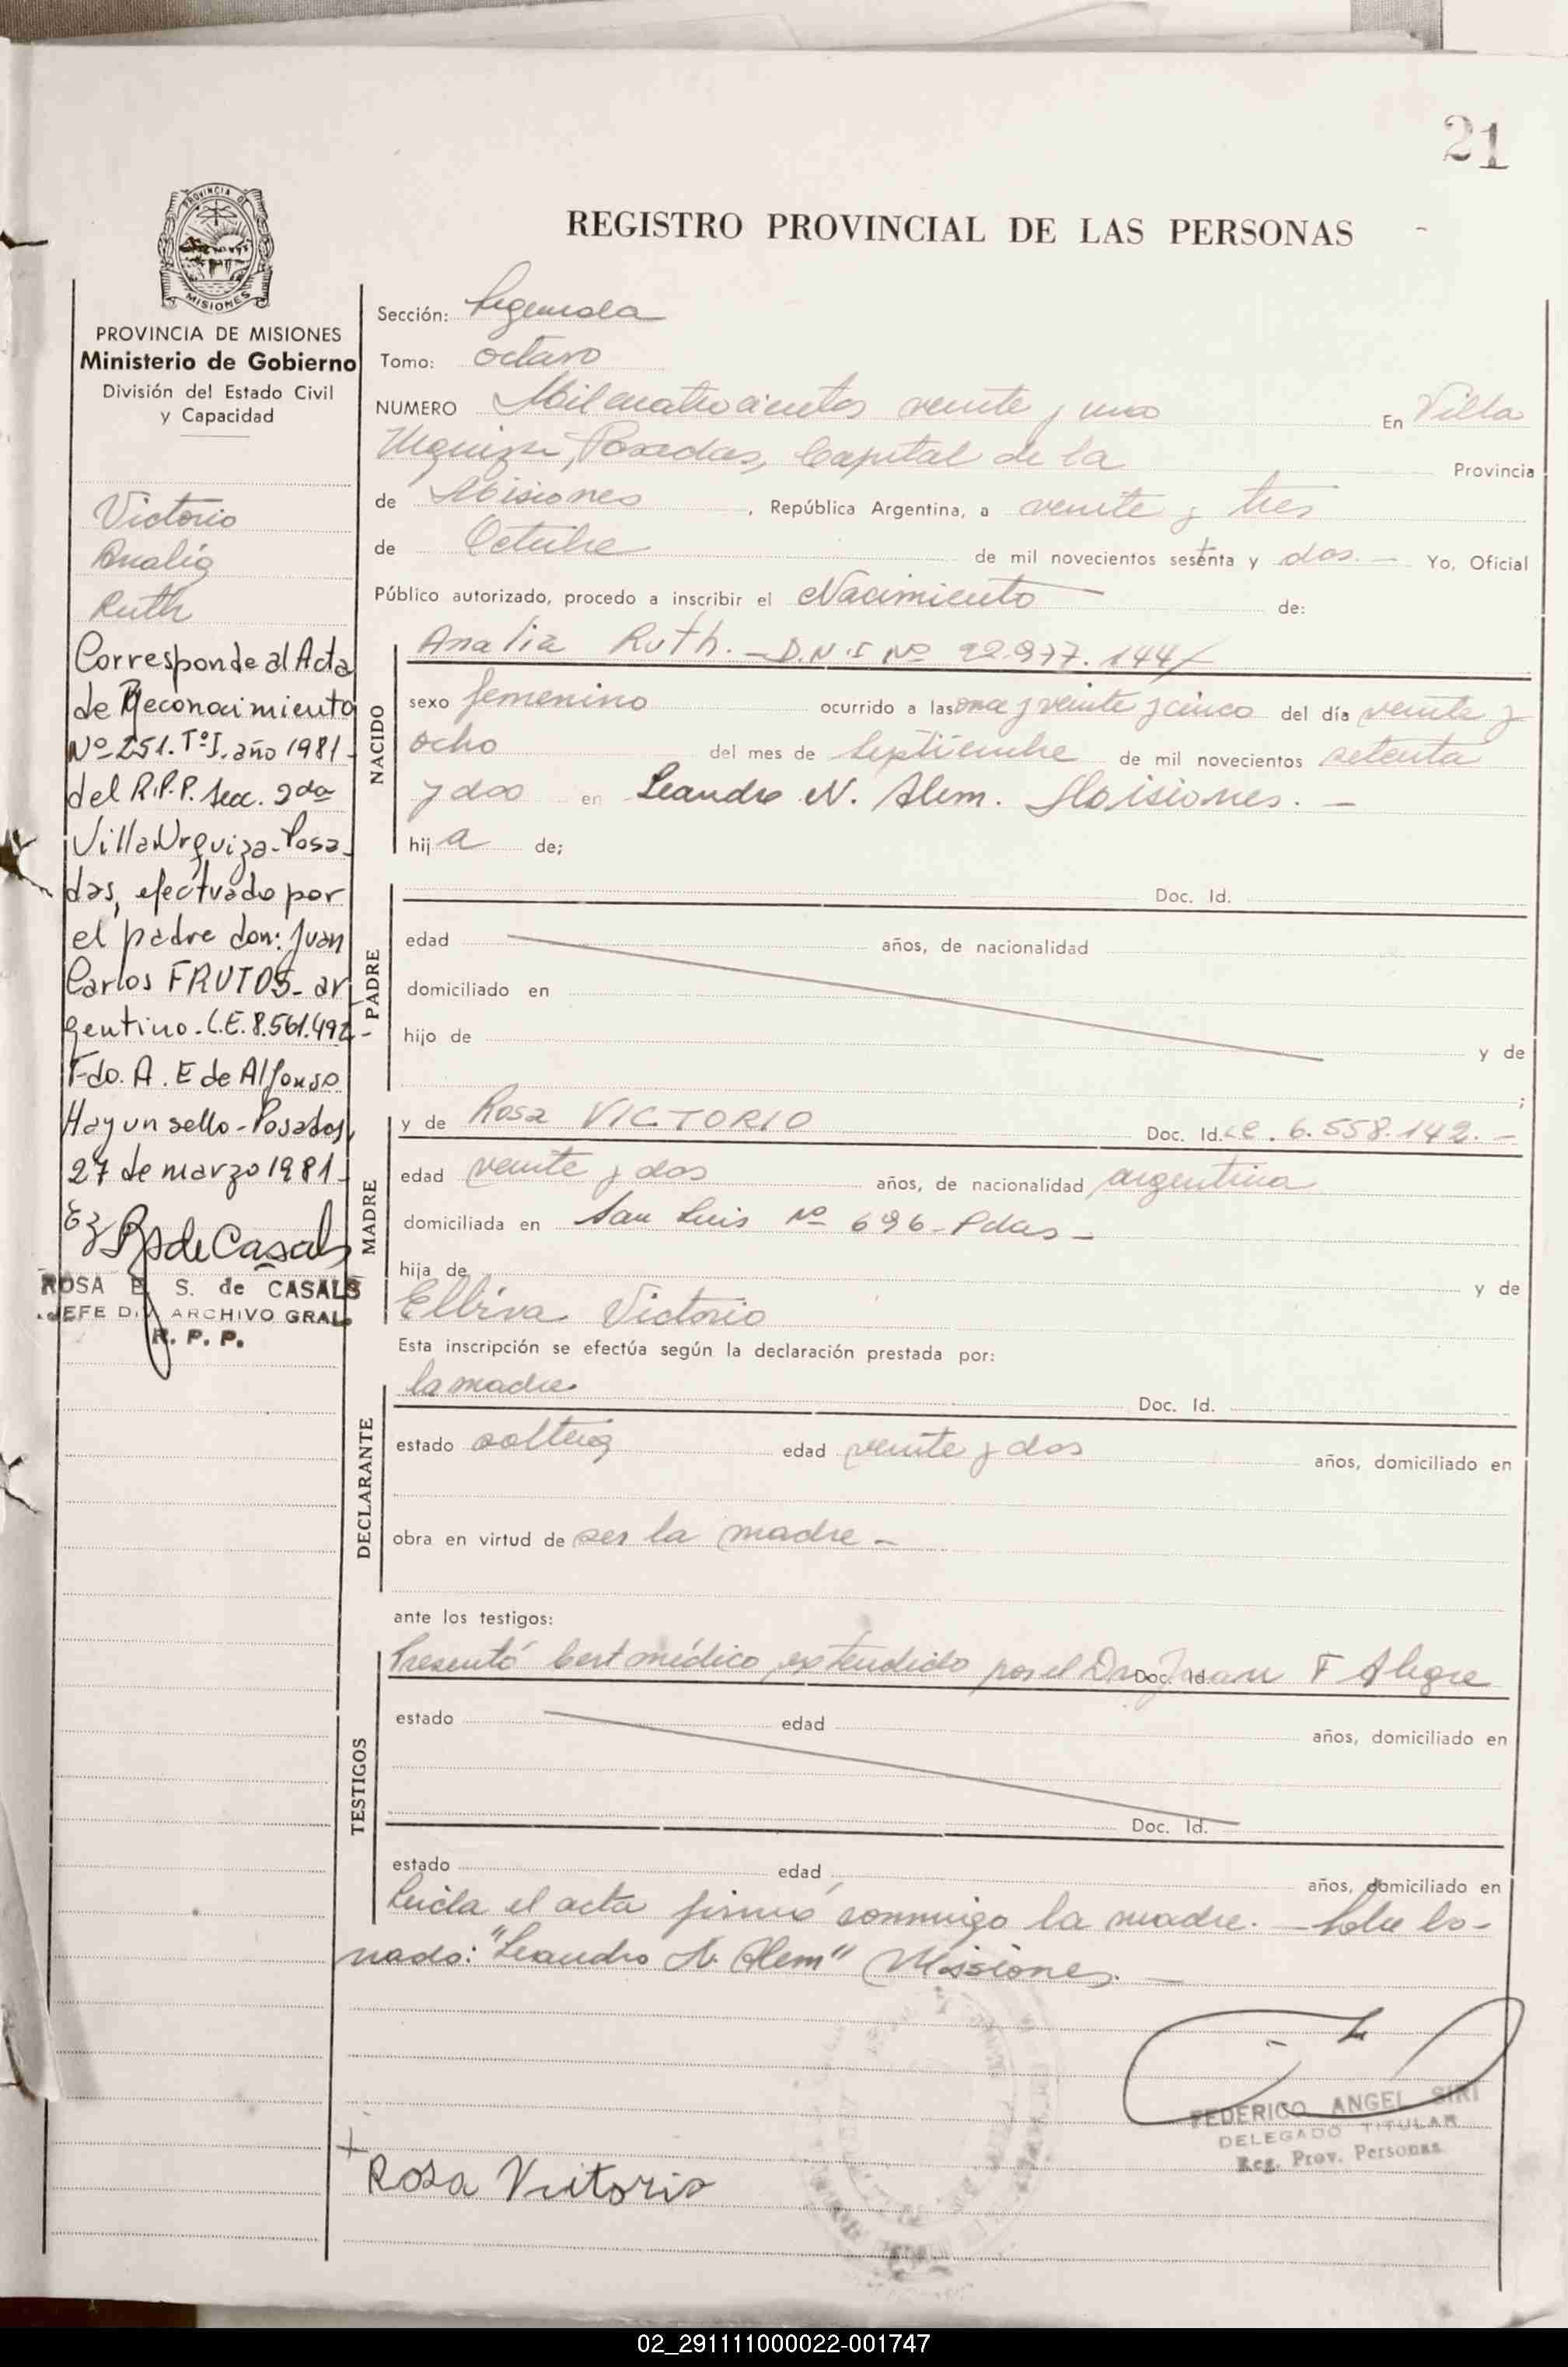 21
PROVINCIA DE
MISIONES
PROVINCIA DE MISIONES
Ministerio de Gobierno
División del Estado Civil
y Capacidad
Victorio
Analia
Ruth
Corresponde al Acta
de Reconocimiento
Nº 251. Tº I. año 1981-
del R.P.P. Secc. 2da
Villa Urquiza-Posa-
das, efectuado por
el padre don: Juan
Carlos FRUTOS- ar
gentino. L.E. 8.561.492-
Fdo. A. E de Alfonso
Hay un sello-Posadas,
27 de marzo 1981-
R de Casals
ROSA E. S. de CASALS
JEFE DIV ARCHIVO GRAL.
R. P. P.
REGISTRO PROVINCIAL DE LAS PERSONAS
Sección: Segunda
Tomo: octavo
NUMERO Mil cuatrocientos veinte y uno En Villa
Urquiza, Posadas, Capital de la Provincia
de Misiones, República Argentina, a veinte y tres
de Octubre de mil novecientos setenta y dos.- Yo, Oficial
Público autorizado, procedo a inscribir el Nacimiento de:
NACIDO
Analia Ruth.- D.N.I Nº 22.977.144/
sexo femenino ocurrido a las once y veinte y cinco del día veinte y
ocho del mes de Septiembre de mil novecientos setenta
y dos en Leandro N. Alem. Misiones.-
hija de;
PADRE
Doc. Id.
edad años, de nacionalidad
domiciliado en
hijo de y de
;
MADRE
y de Rosa VICTORIO Doc. Id. L.C. 6.558.142.-
edad veinte y dos años, de nacionalidad argentina
domiciliada en San Luis Nº 696-Pdas-
hija de y de
Elbina Victorio
Esta inscripción se efectúa según la declaración prestada por:
DECLARANTE
la madre Doc. Id.
estado soltera edad veinte y dos años, domiciliado en
obra en virtud de ser la madre-
ante los testigos:
TESTIGOS
Presentó Cert médico extendido por el Dr. Juan F Alegre Doc. Id.
estado edad años, domiciliado en
Doc. Id.
estado edad años, domiciliado en
Leida el acta firmó conmigo la madre.- Sobre bo-
rrado: "Leandro N. Alem" Misiones.-
FEDERICO ANGEL SIRI
DELEGADO TITULAR
Reg. Prov. Personas
Rosa Victorio
02_291111000022-001747